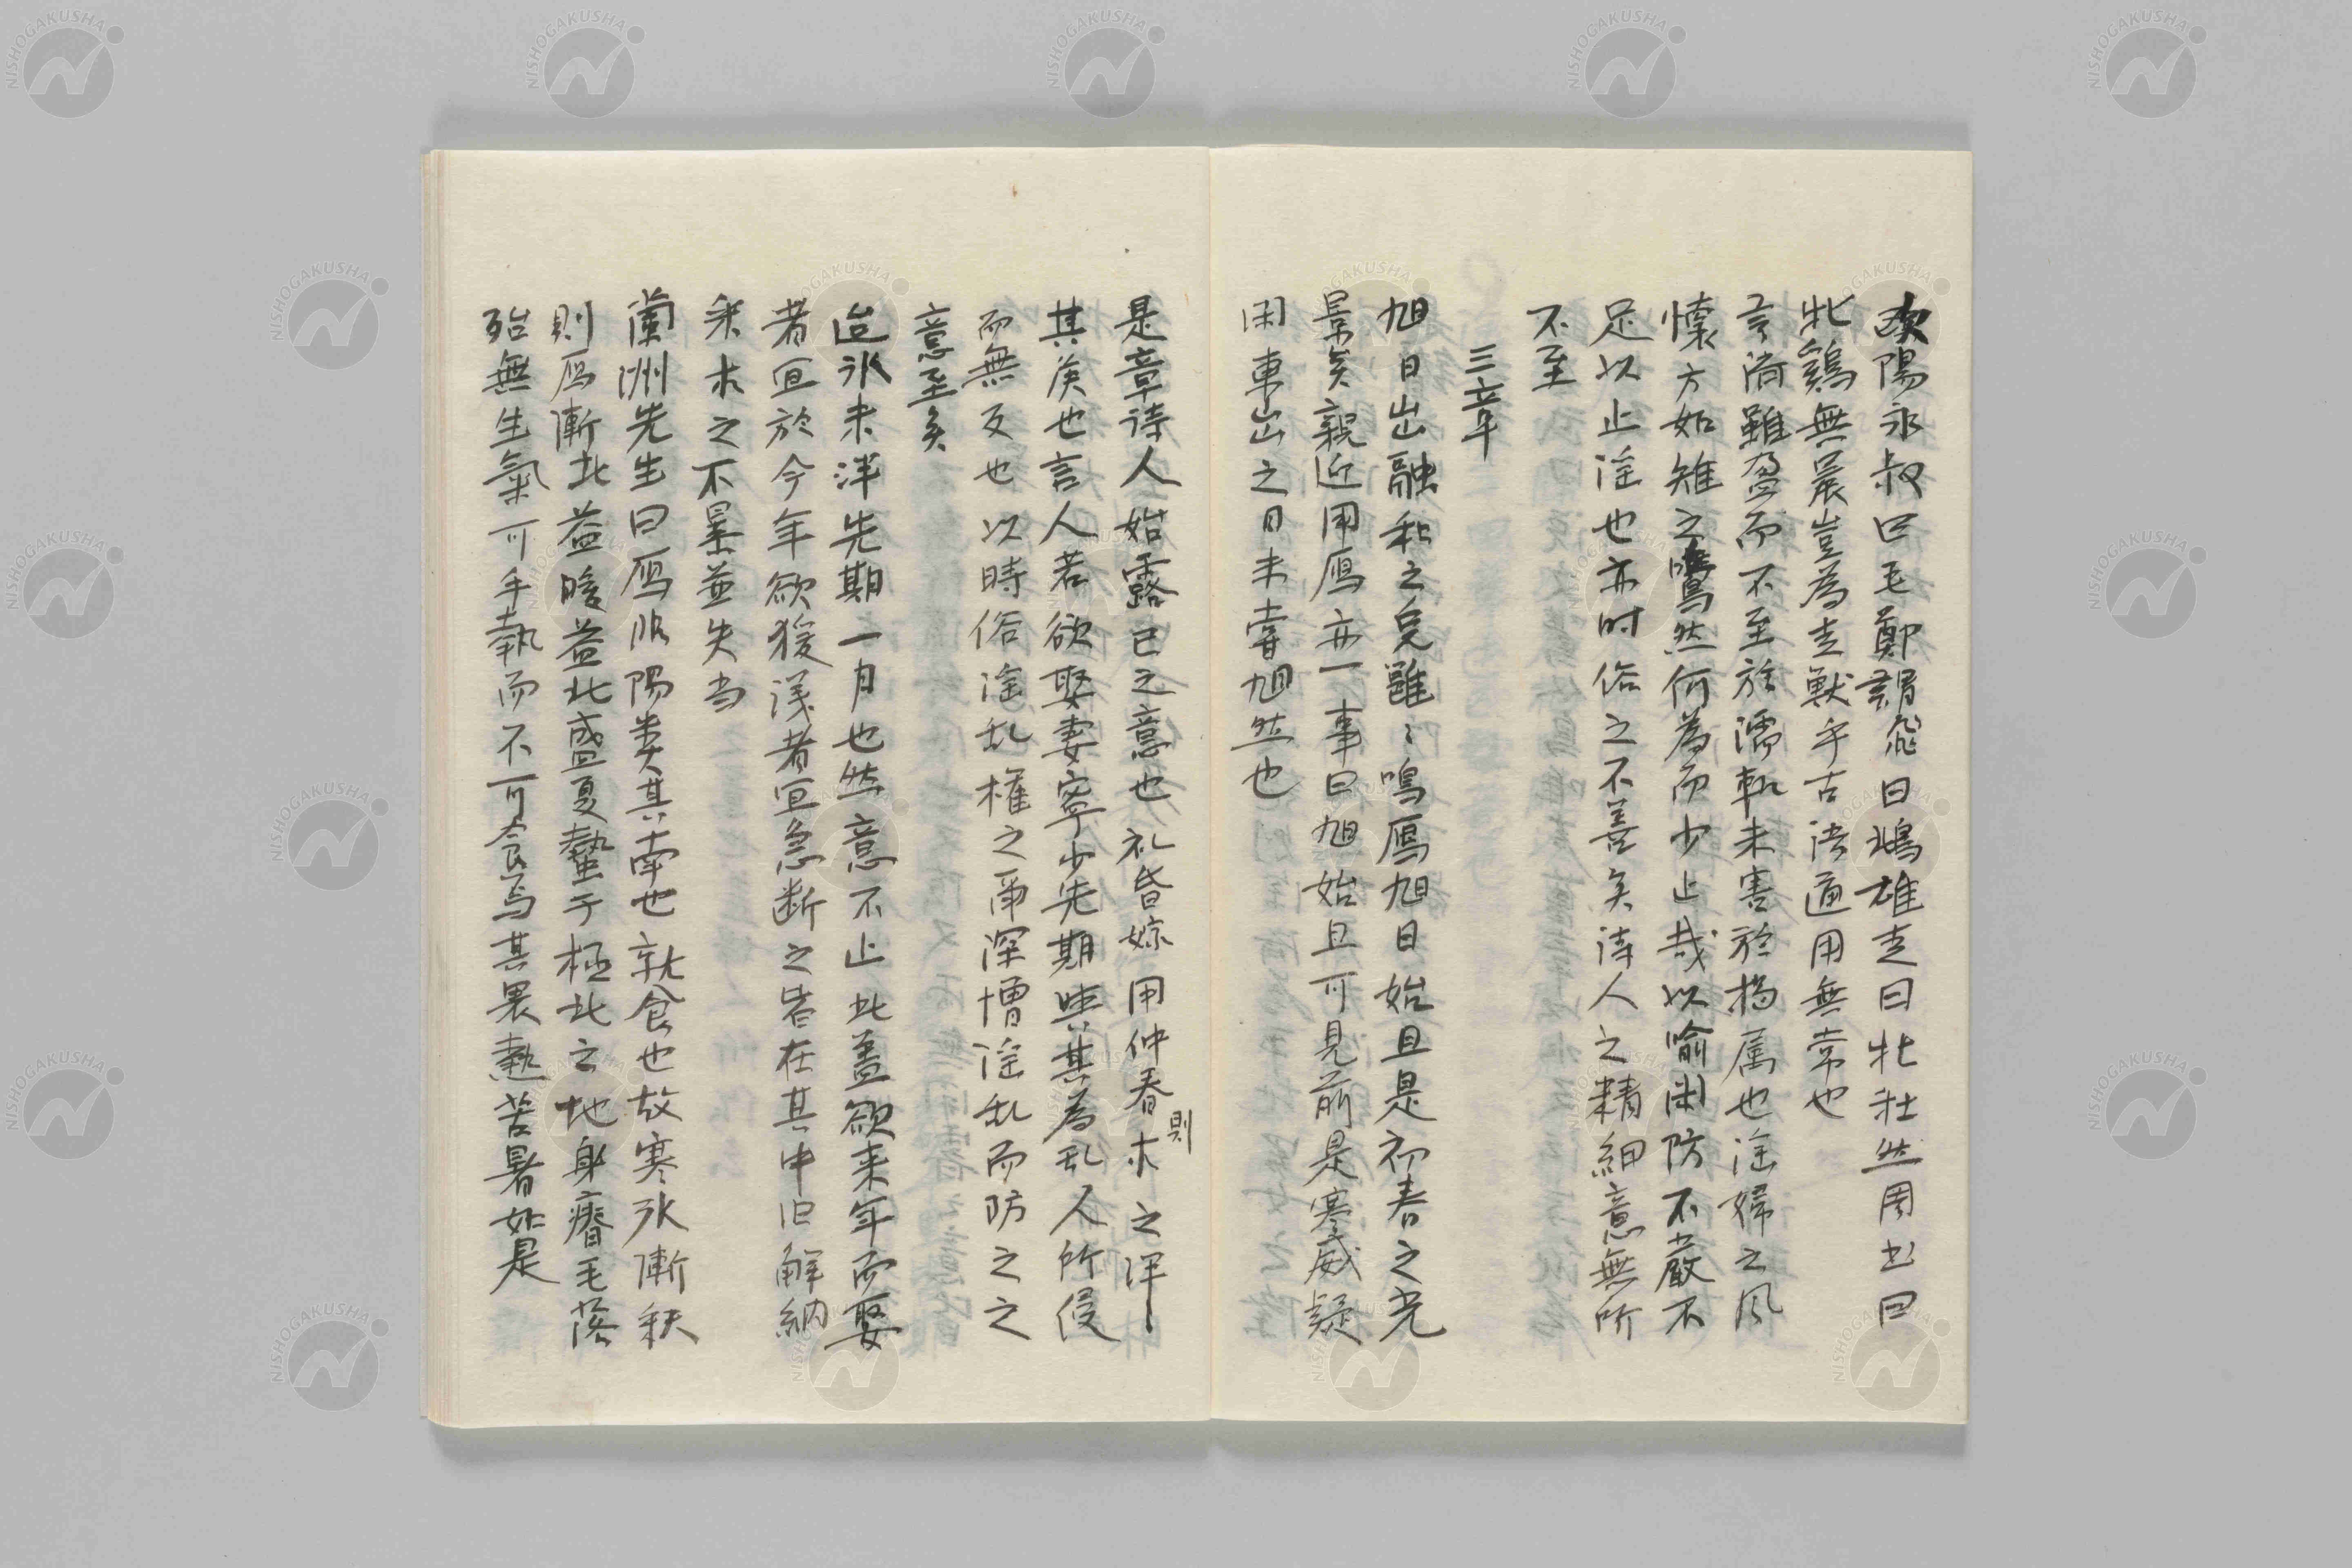 欧陽永叔曰毛鄭謂飛曰鴟雄走曰牝牡然周書曰
牝鷄無晨豈為走獣乎古語通用無常也
言済雖盈而不至於濡軌未害於揭厲也淫婦之風
懐方如雉之鳴然何為而少止哉以喻閑防不嚴不
足以止淫也亦时俗之不善矣诗人之精細意無所
不至
三章
旭日出融和之皃雝〻鳴鴈旭日始旦是初春之光
景矣親近用鴈亦一事曰旭始旦可見前是寒威疑
闲東出之日未嘗旭然也
是章诗人始露己之意也礼昏嫁用仲春氷之泮
則
其矦也言人若欲娶妻寧少先期無其為乱人所侵
而無反也以時俗淫乱権之而深憎淫乱而防之之
意至矣
迨氷未泮先期一月也然意不止此蓋欲来年而娶
者宜於今年欲緩浅者宜急断之皆在其中旧解納
采木之不暴並失当
蘭洲先生曰鴈随陽类其南也就食也故寒氷漸秋
則鴈漸北益暖益北盛夏蟄于極北之地身瘠毛落
殆無生氣可手執而不可食焉其畏熱苦暑如是